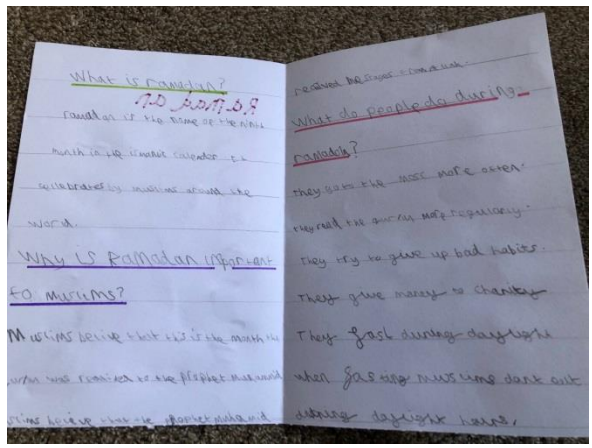 What is ramadan?
ramadan is the name of the ninth
month in the islamic calender it
celebrated by muslims around the
world.
Why is Ramadan important
to muslims?
Muslims belive that this is the month the
was to the prophet
believe that the prophet
received
What do people do during
ramadan?
They go to the more often.
they read the more regularly.
They try to give up bad habits.
They give money to charity
They fast during daylight
when fasting muslims dont eat
during daylight hours.